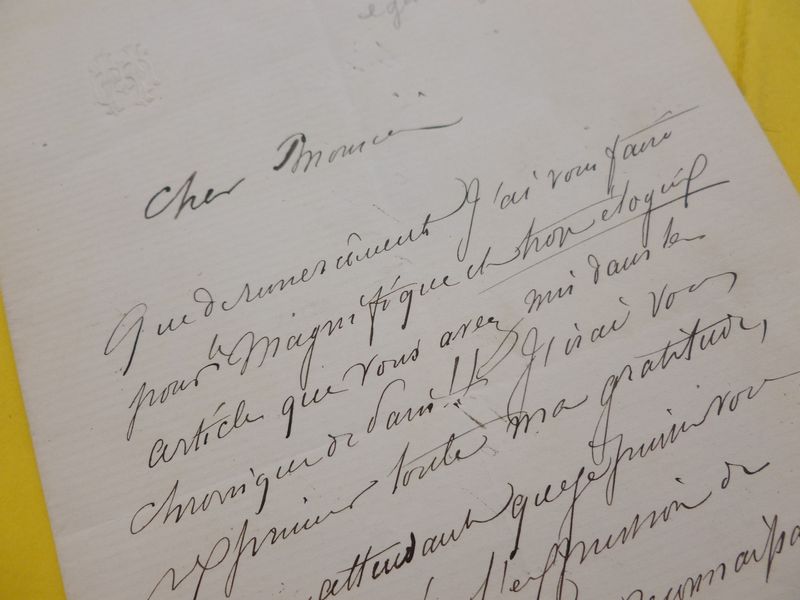 Cher Monsieur
Que de remerciements J'ai vous faire
pour le Magnifique et trop élogieux
article que vous avez mis dans la
chronique de Paris!! J'irai vous
exprimer toute ma gratitude,
attendant que je puisse vous
l'expression de
reconnaissa